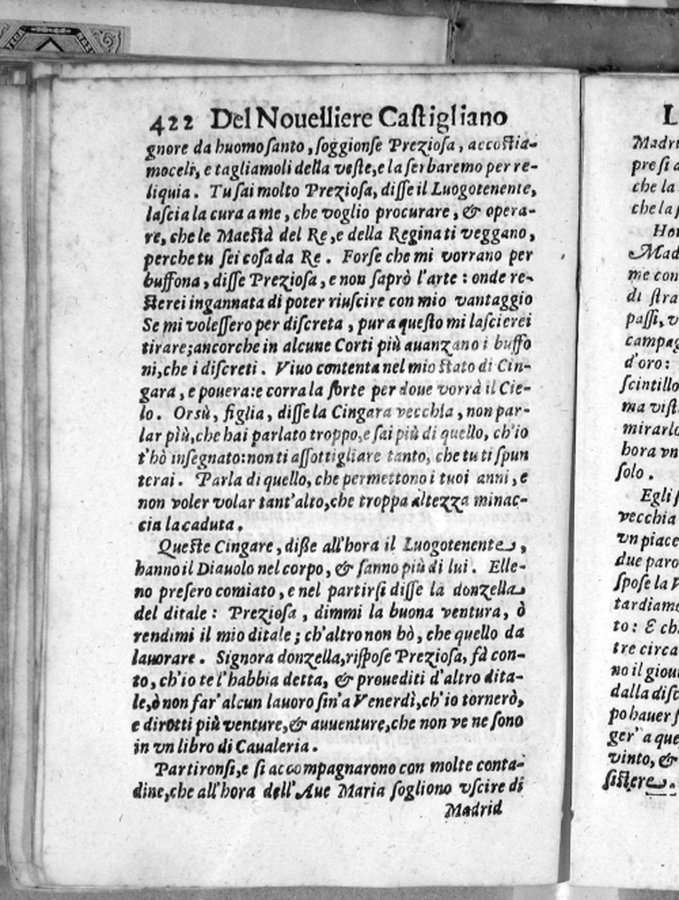 422 Del Nouelliere Caſtigliano
gnore da huomo ſanto, ſoggionſe Prezioſa, accoſtia-
moceli, e tagliamoli della veſte, e la ſerbaremo per re-
liquia. Tu ſai molto Prezioſa, diſſe il Luogotenente,
laſcia la cura a me, che voglio procurare, & opera-
re, che le Maeſtà del Re, e della Regina ti veggano,
perche tu ſei coſa da Re. Forſe che mi vorrano per
buffona, diſſe Prezioſa, e non ſaprò l'arte: onde re-
ſterei ingannata di poter riuſcire con mio vantaggio
Se mi voleſſero per diſcreta, pur a queſto mi laſcierei
tirare; ancorche in alcune Corti più auanzano i buffo
ni, che i diſcreti. Viuo contenta nel mio ſtato di Cin-
gara, e pouera: e corra la ſorte per doue vorrà il Cie-
lo. Orsù, figlia, diſſe la Cingara vecchia, non par-
lar più, che hai parlato troppo, e ſai più di quello, ch'io
t'hò inſegnato: non ti aſſottigliare tanto, che tu ti ſpun
terai. Parla di quello, che permettono i tuoi anni, e
non voler volar tant'alto, che troppa altezza minac-
cia la caduta.
Queſte Cingare, diße all'hora il Luogotenente,
hanno il Diauolo nel corpo, & ſanno più di lui. Elle-
no preſero comiato, e nel partirſi diſſe la donzella
del ditale: Prezioſa, dimmi la buona ventura, ò
rendimi il mio ditale; ch'altro non hò, che quello da
lauorare. Signora donzella, riſpoſe Prezioſa, fà con-
to, ch'io te l'habbia detta, & prouediti d'altro dita-
le, ò non far' alcun lauoro ſin'a Venerdì, ch'io tornerò,
e dirotti più venture, & auuenture, che non ve ne ſono
in vn libro di Caualeria.
Partironſi, e ſi accompagnarono con molte conta-
dine, che all'hora dell'Aue Maria ſogliono vſcire di
Madrid
L
Madri
preſi a
che la
che la ſ
Hor
Mad
me con
di ſtra
paſſi, v
campag
d'oro:
ſcintillo
ma viſt
mirarlo
hora vn
ſolo.
Egli ſ
vecchia
vn piace
due paro
ſpoſe la V
tardiamo
to: E ch
tre circa
no il giou
dalla diſc
po hauer ſ
ger' a que
vinto, &
ſiſtere.